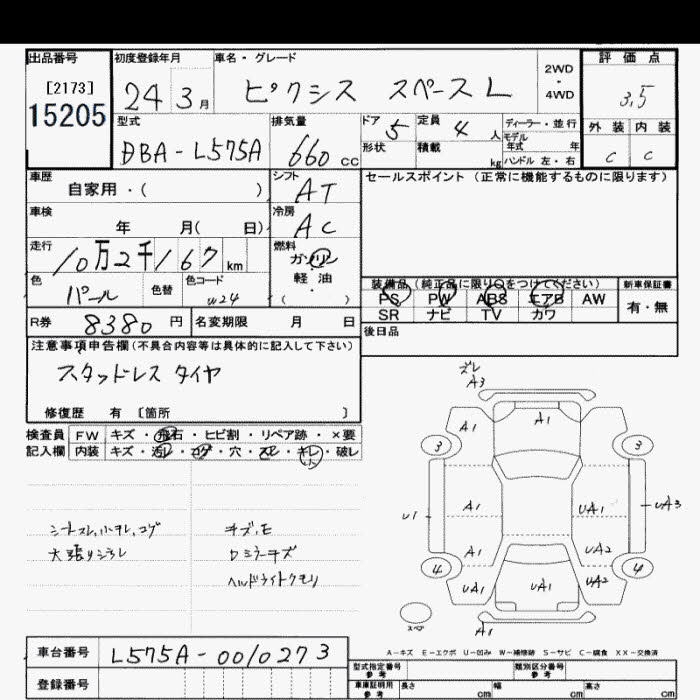 出品番号 初度登録年月 車名・グレード 2WD・4WD 評価点
[2173]
15205
24 3月 ピクシス スペースL 3.5
型式 排気量 ドア 定員 ディーラー・並行 外装 内装
DBA-L575A 660cc 5 4人 モデル年式 年 C C
形状 積載 kg ハンドル 左・右
車歴 シフト セールスポイント(正常に機能するものに限ります)
自家用・( ) AT
車検 冷房
年 月( 日) AC
走行 燃料
10万2千167km ガソリン
軽油
( )
色 色替 色コード
パール W24
装備品(純正品に限り○をつけてください) 新車保証書
PS PW ABS エアB AW 有・無
SR ナビ TV カワ
R券 8380円 名変期限 月 日 後日品
注意事項申告欄(不具合内容等は具体的に記入して下さい)
スタッドレスタイヤ
修復歴 有 〔箇所 〕
検査員 FW キズ・飛石・ヒビ割・リペア跡・×要
記入欄 内装 キズ・汚レ・コゲ・穴・スレ・キレ・破レ
小
ズレ
A3
A1 A1
3 3
U1 A1 UA1 UA3
A1 UA2
4 4
UA1 UA1 UA2
スペア A1
シートスレ,小キレ,コゲ キズ,モ
天張りシミレ ロミラーキズ
ヘッドライトクモリ
A-キズ E-エクボ U-凹み W-補修跡 S-サビ C-腐食 XX-交換済
車台番号 L575A-0010273
登録番号
型式指定番号 参考 類別区分番号 参考
車庫証明用 参考 長さ cm 幅 cm 高さ cm